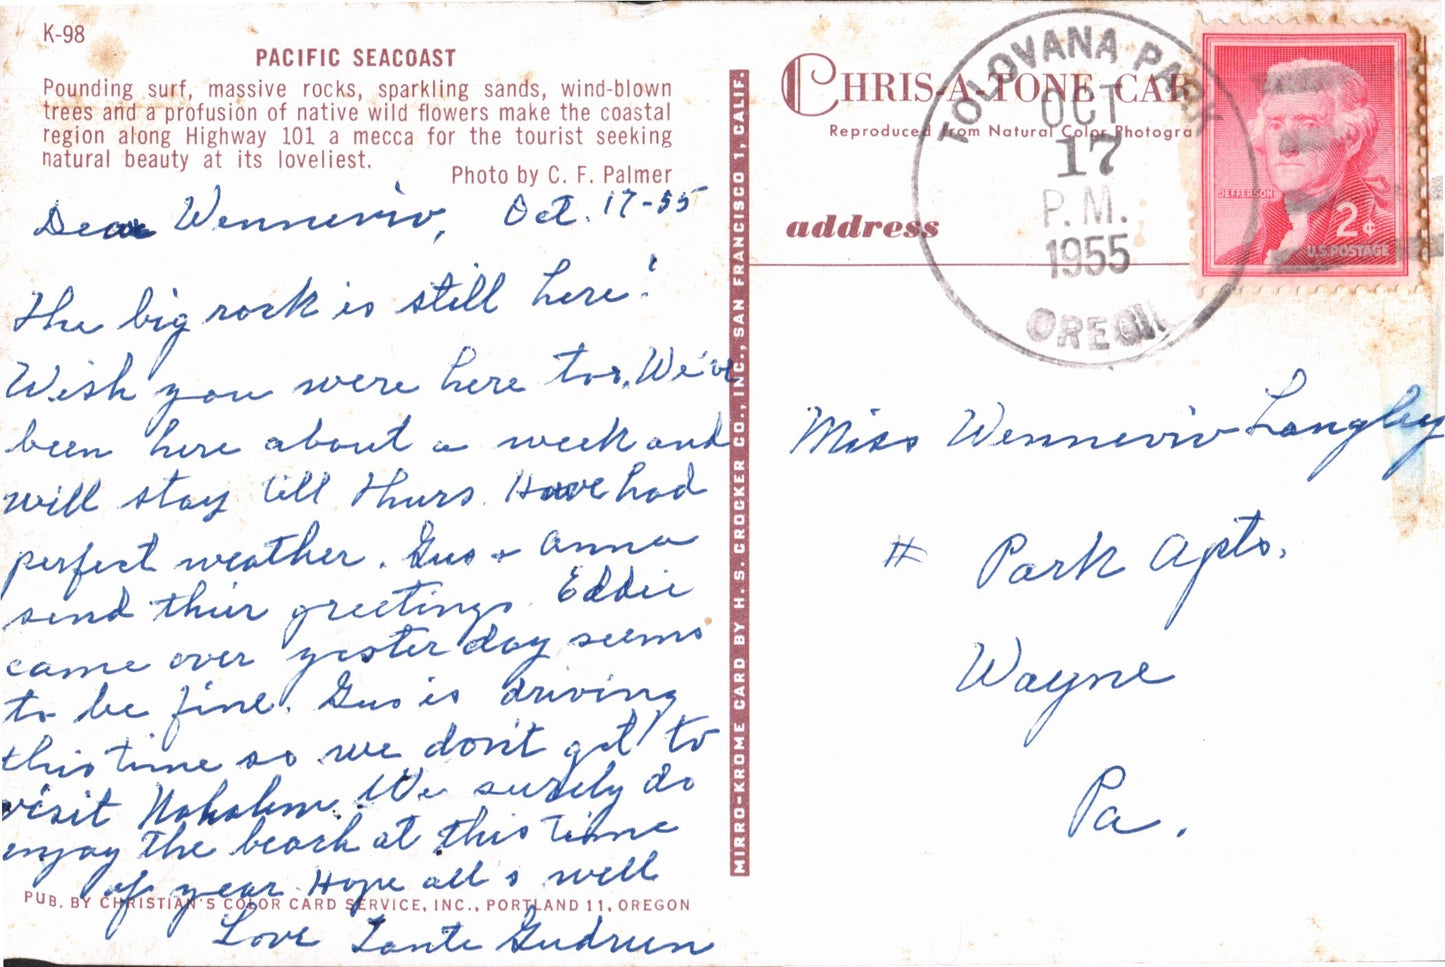 K-98
PACIFIC SEACOAST
Pounding surf, massive rocks, sparkling sands, wind-blown
trees and a profusion of native wild flowers make the coastal
region along Highway 101 a mecca for the tourist seeking
natural beauty at its loveliest.
Photo by C. F. Palmer
Dear Wenneviv, Oct. 17-55
The big rock is still here!
Wish you were here too. We've
been here about a week and
will stay till Thurs. Have had
perfect weather. Gus + Anna
send their greetings. Eddie
came over yesterday seems
to be fine. Gus is driving
this time so we don't get to
visit Nehalem. We surely do
enjoy the beach at this time
of year. Hope all s well
PUB. BY CHRISTIAN'S COLOR CARD SERVICE, INC., PORTLAND 11, OREGON
Love Tante Gudrun
MIRRO-KROME CARD BY H. S. CROCKER CO., INC., SAN FRANCISCO 1, CALIF.
CHRIS-A-TONE CAR
Reproduced from Natural Color Photogra
address
TOLOVANA PARK
OCT
17
P.M.
1955
OREGON
JEFFERSON
2¢
U.S. POSTAGE
Miss Wenneviv Langley
# Park Apts.
Wayne
Pa.